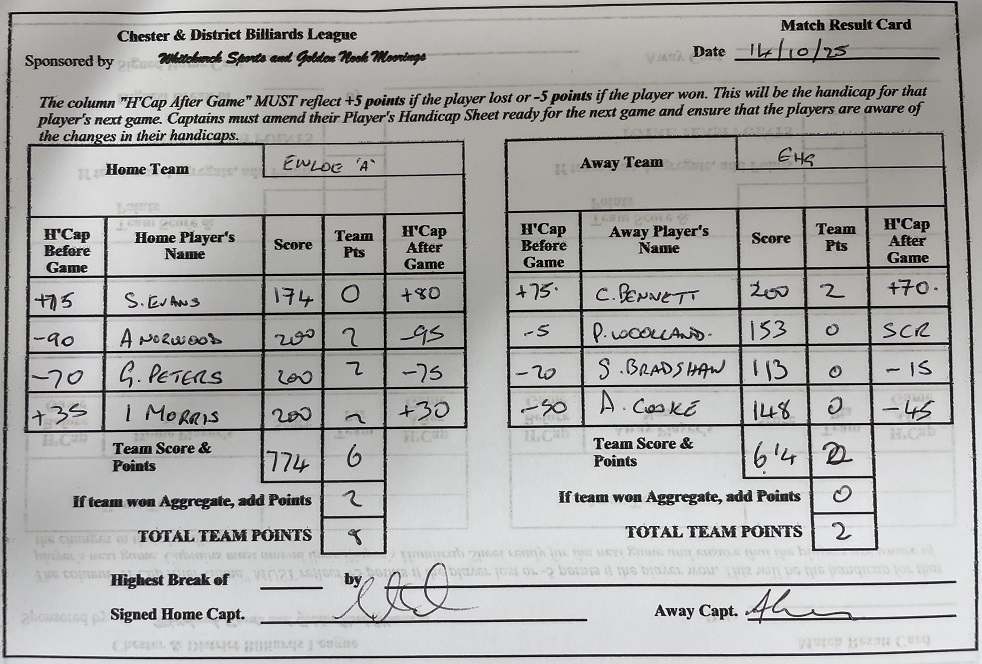 Chester & District Billiards League
Match Result Card
Sponsored by Whitchurch Sports and Golden Nook Moorings
Date 14/10/25
The column "H'Cap After Game" MUST reflect +5 points if the player lost or -5 points if the player won. This will be the handicap for that
player's next game. Captains must amend their Player's Handicap Sheet ready for the next game and ensure that the players are aware of
the changes in their handicaps.
Home Team EWLOE 'A'
H'Cap Before Game Home Player's Name Score Team Pts H'Cap After Game
+75 S. EVANS 174 0 +80
-90 A NORWOOD 200 2 -95
-70 G. PETERS 200 2 -75
+35 I MORRIS 200 2 +30
Team Score & Points 774 6
If team won Aggregate, add Points 2
TOTAL TEAM POINTS 8
Away Team EHG
H'Cap Before Game Away Player's Name Score Team Pts H'Cap After Game
+75. C. BENNETT 200 2 +70.
-5 P. WOOLLAND. 153 0 SCR
-20 S. BRADSHAW 113 0 -15
-50 A. COOKE 148 0 -45
Team Score & Points 614 2
If team won Aggregate, add Points 0
TOTAL TEAM POINTS 2
Highest Break of by
Signed Home Capt.
Away Capt.